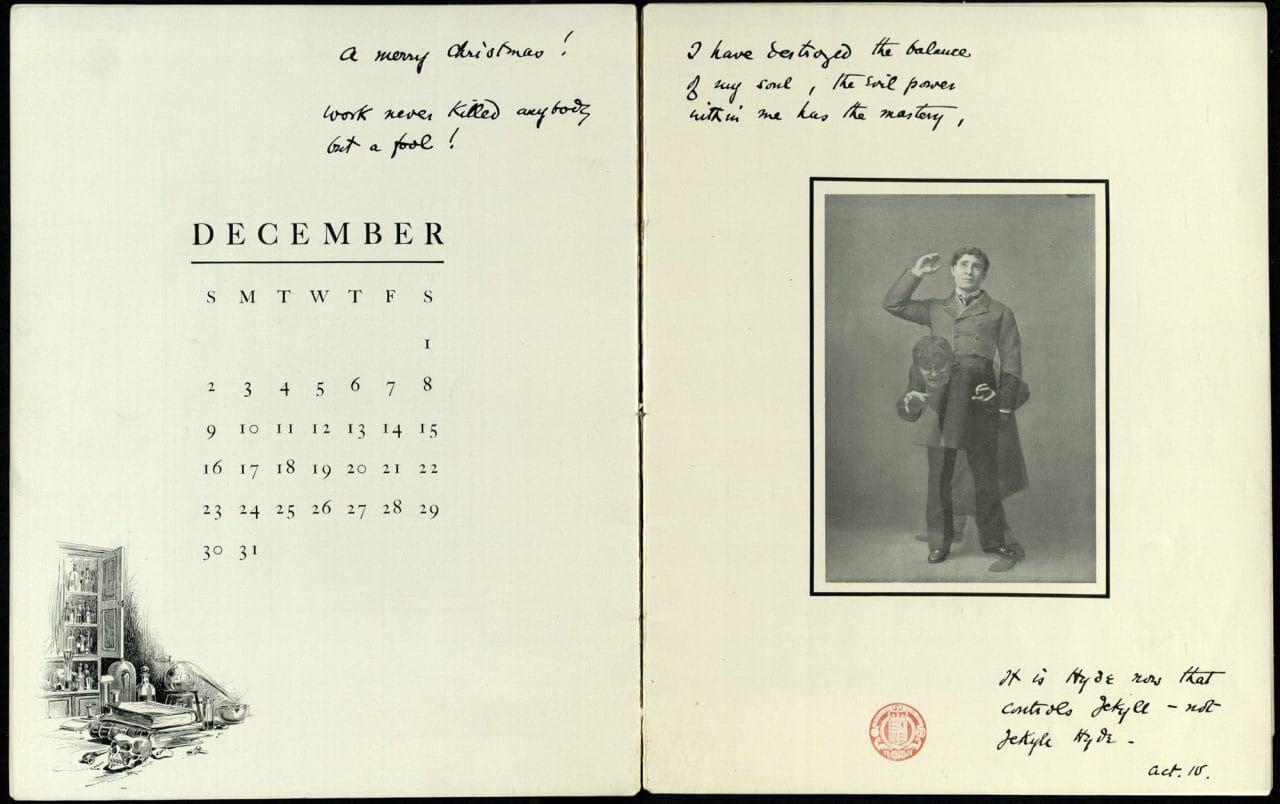 A merry Christmas!
Work never killed anybody
but a fool!
DECEMBER
S M T W T F S
1
2 3 4 5 6 7 8
9 10 11 12 13 14 15
16 17 18 19 20 21 22
23 24 25 26 27 28 29
30 31
I have destroyed the balance
of my soul, the evil power
within me has the mastery,
It is Hyde now that
controls Jekyll - not
Jekyll Hyde -
Act. IV.